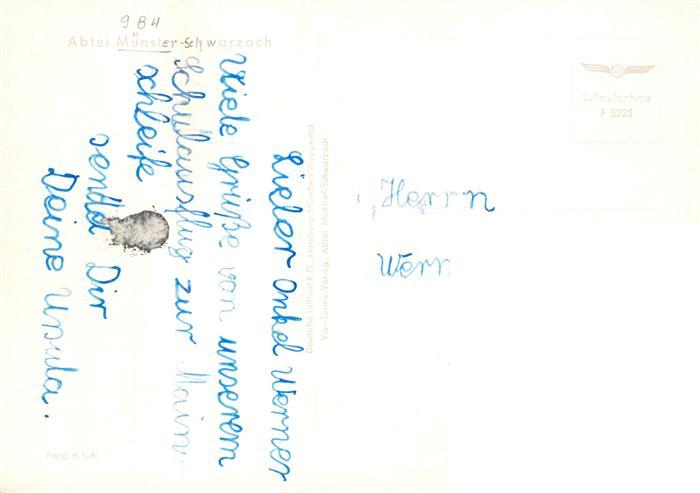 984
Abtei Münster-Schwarzach
Lieber Onkel Werner
Viele Grüße von unserem
Schulausflug zur Main-
schleife
sendet Dir
Deine Ursula.
Freig. d. L.A.
Deutsche Luftbild K.G., Hamburg-München-Wuppertal
Vier-Türme-Verlag, Abtei Münster-Schwarzach
Luftaufnahme
F 5225
Herrn
Wern